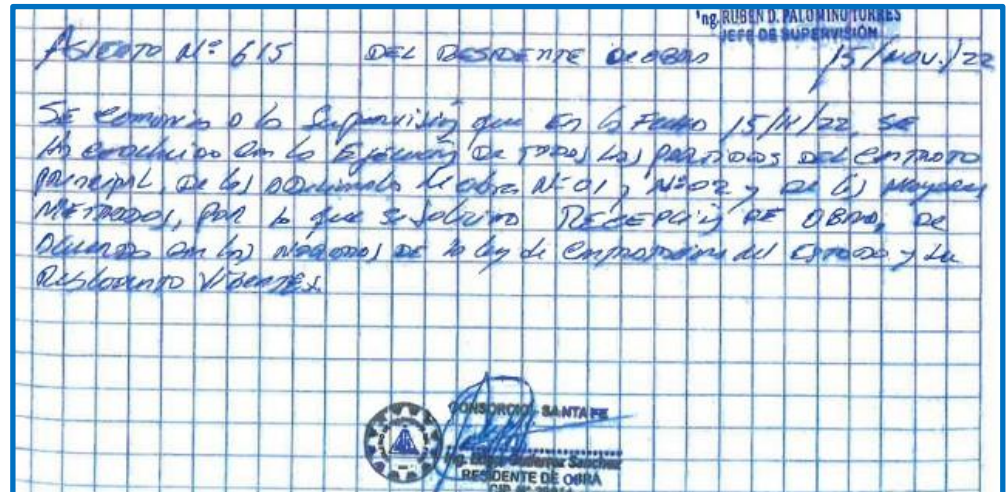 Ing. RUBEN D. PALOMINO TORRES
JEFE DE SUPERVISIÓN
ASIENTO Nº 615 DEL RESIDENTE DE OBRA 15/NOV./22
SE comunica a la Supervisión que En la Fecha 15/11/22, SE
ha concluido con la Ejecución DE TODAS LAS PARTIDAS DEL CONTRATO
PRINCIPAL, DE los adicionales de obra Nº 01 y Nº 02 y DE los Mayores
METRADOS, POR lo que se solicita RECEPCIÓN DE OBRA, DE
acuerdo con las de la ley de contrataciones del ESTADO y su
REGLAMENTO VIGENTES.
CONSORCIO SANTA FE
Ing. Sanchez
RESIDENTE DE OBRA
CIP Nº